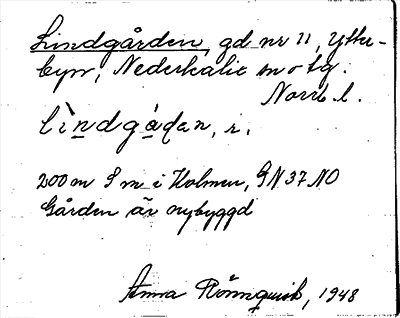 Lindgården, gd nr 11, Ytter-
byn, Nederkalix sn o tg.
Norrb. l.
lìndgádan, r.
200 m S m i Holmen, GN 37 NO
Gården är nybyggd
Anna Rönnquist, 1948